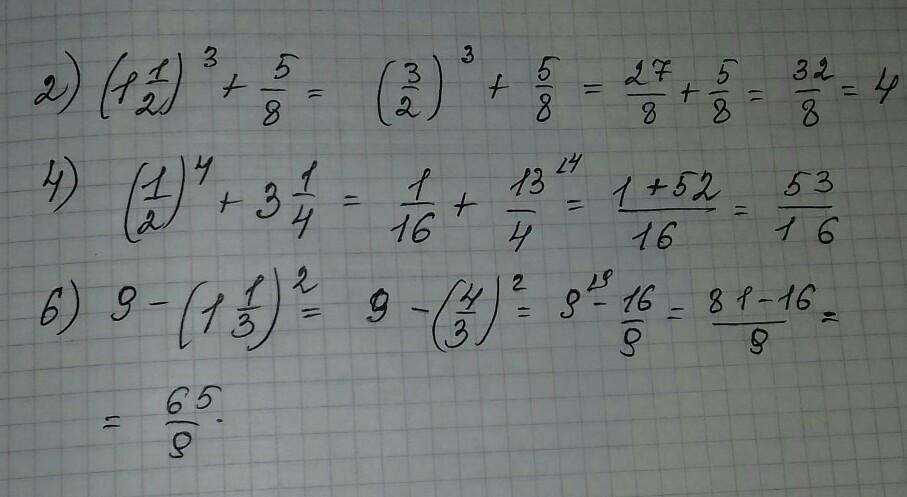 2) (1 1/2)^3 + 5/8 = (3/2)^3 + 5/8 = 27/8 + 5/8 = 32/8 = 4
4) (1/2)^4 + 3 1/4 = 1/16 + 13/4 ^{/4} = (1+52)/16 = 53/16
6) 9 - (1 1/3)^2 = 9 - (4/3)^2 = 9 ^{/9} - 16/9 = (81-16)/9 =
= 65/9.